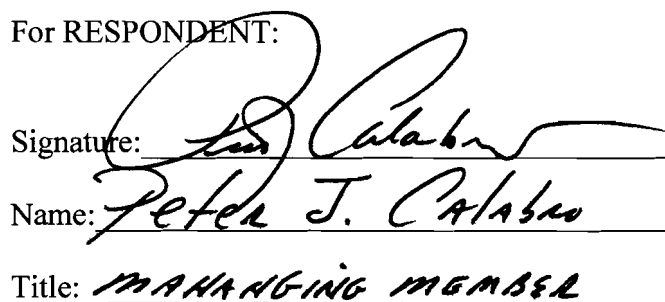 For RESPONDENT:
Signature: Calabro
Name: Peter J. Calabro
Title: MANANGING MEMBER